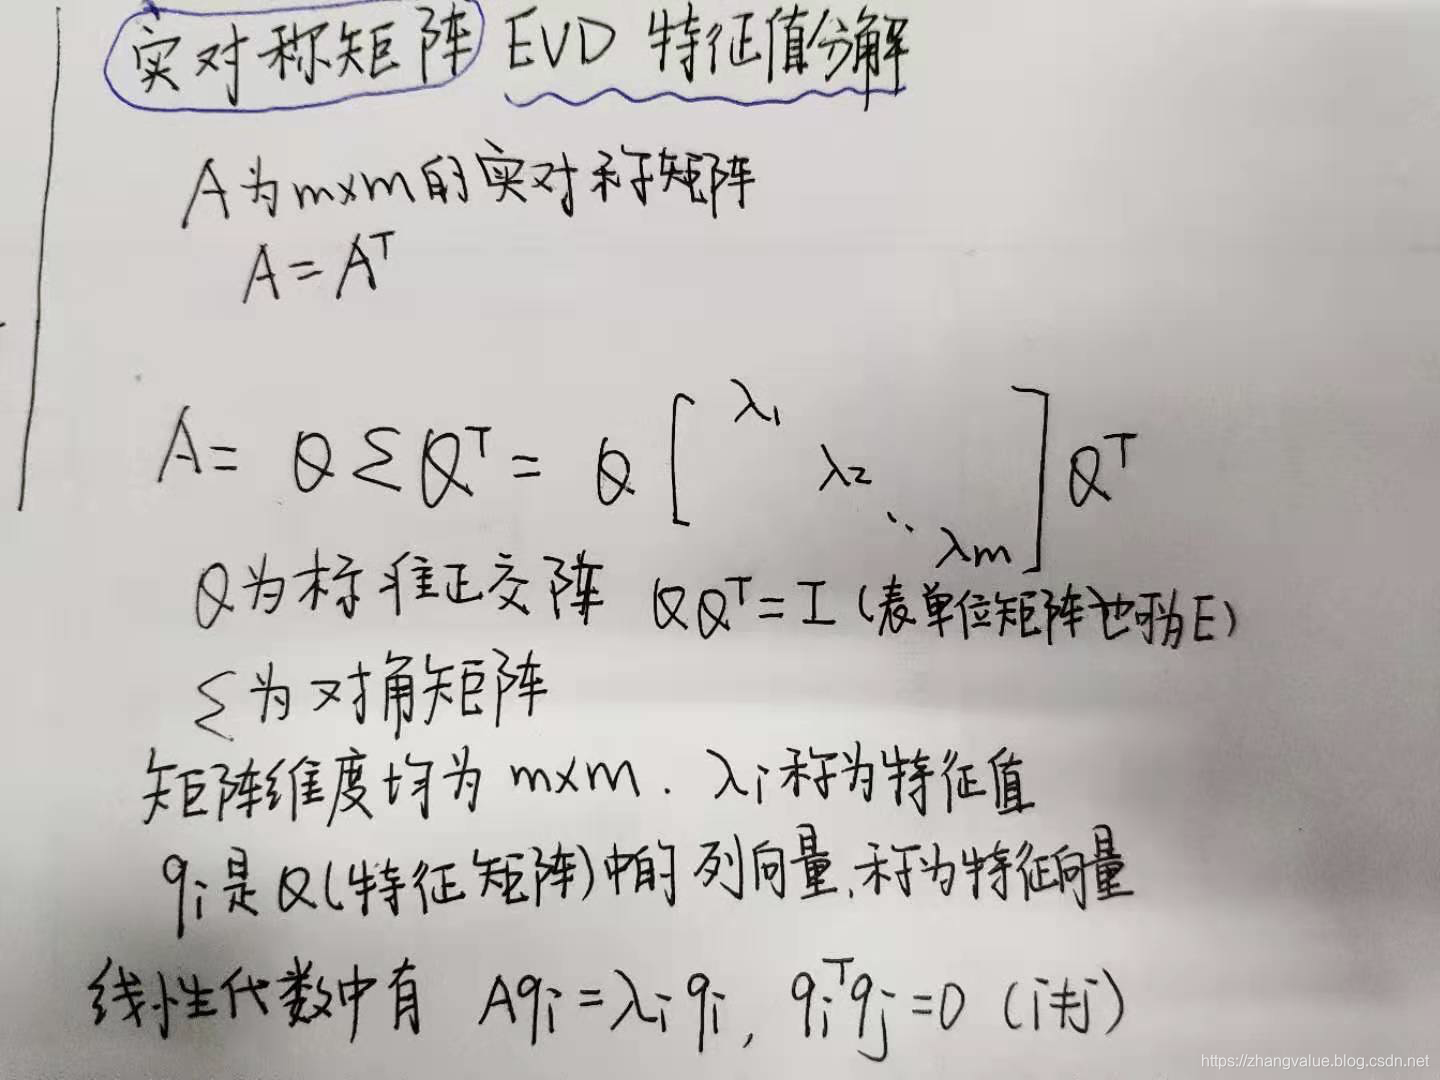 实对称矩阵 EVD 特征值分解
A为m×m的实对称矩阵
A=Aᵀ
A= QΣQᵀ = Q [ λ₁ λ₂ ⋱ λm ] Qᵀ
Q为标准正交阵 QQᵀ=I(表单位矩阵也可为E)
Σ为对角矩阵
矩阵维度均为 m×m. λi称为特征值
qi是Q(特征矩阵)中的列向量,称为特征向量
线性代数中有 Aqi=λiqi, qiᵀqj=0 (i≠j)
https://zhangvalue.blog.csdn.net